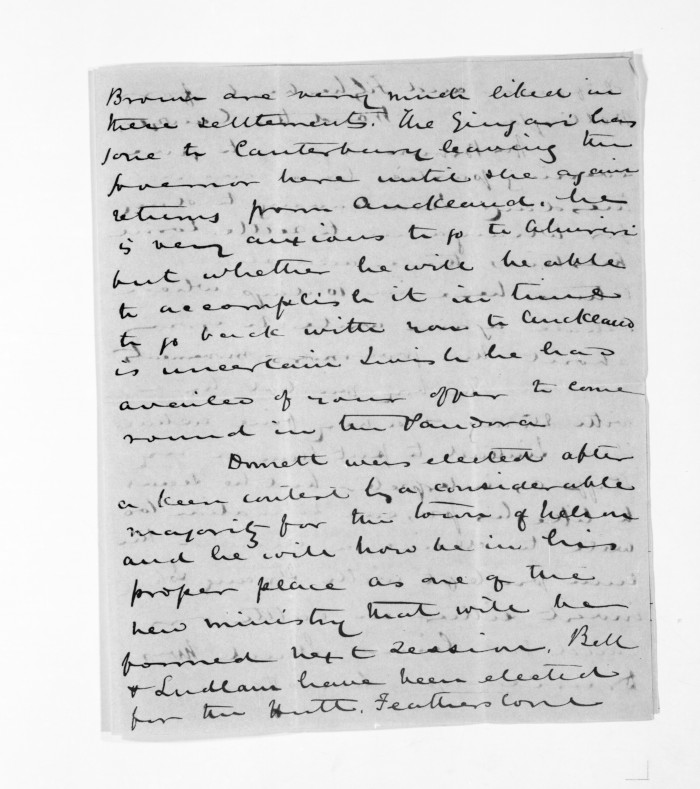 Brown are very much liked in
these settlements. The Zingari has
gone to Canterbury leaving the
Governor here until she again
returns from Auckland, he
is very anxious to go to Ahuriri
but whether he will be able
to accomplish it in time
to go back with you to Auckland
is uncertain I wish he had
availed of your offer to come
round in the Pandora
Domett was elected after
a keen contest by a considerable
majority for the town of Nelson
and he will now be in his
proper place as one of the
new ministry that will be
formed next session. Bell
& Ludlam have been elected
for the Hutt. Featherston